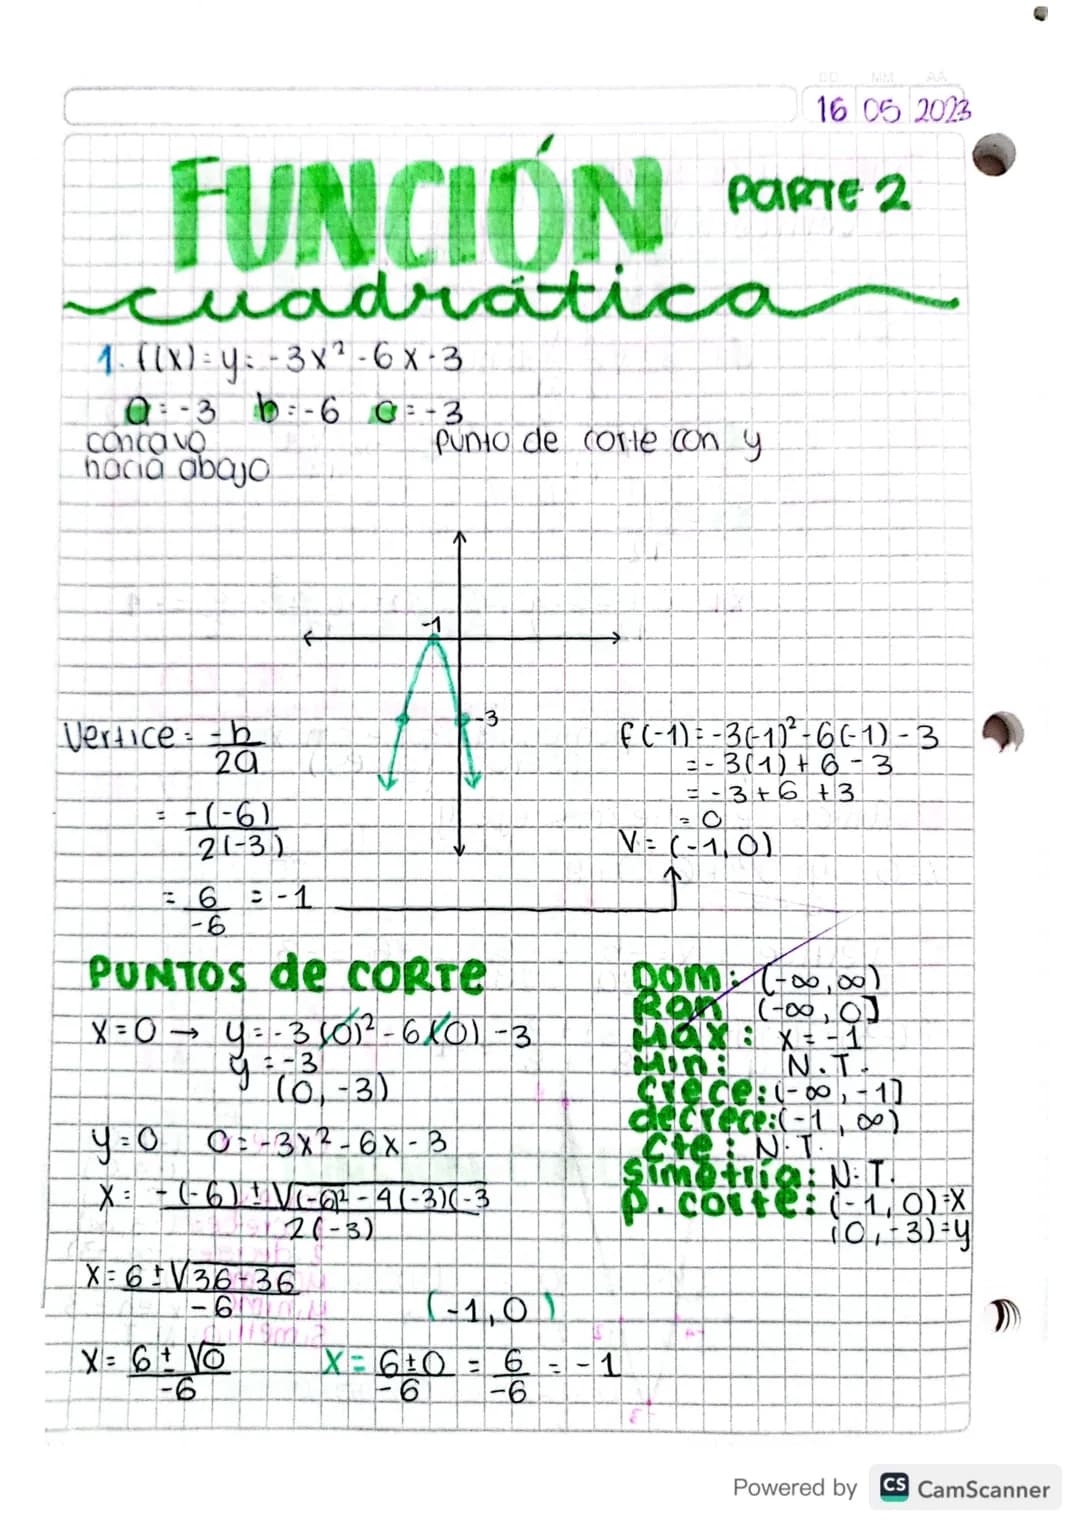 DD MM AA
16 05 2023
FUNCIÓN PARTE 2
cuadrática
1. f(x) = y = -3x² - 6x - 3
a = -3 b = -6 c = -3
cóncavo
hacia abajo
Punto de corte con y
-1
-3
Vertice = -b / 2a
= -(-6) / 2(-3)
= 6 / -6 = -1
f(-1) = -3(-1)² - 6(-1) - 3
= -3(1) + 6 - 3
= -3 + 6 + 3
= 0
V = (-1, 0)
PUNTOS de CORTE
x = 0 → y = -3(0)² - 6(0) - 3
y = -3
(0, -3)
y = 0 0 = -3x² - 6x - 3
x = -(-6) ± √(-6)² - 4(-3)(-3 / 2(-3)
x = 6 ± √36-36 / -6
(-1, 0)
x = 6 ± √0 / -6 x = 6±0 / -6 = 6 / -6 = -1
Dom: (-∞, ∞)
Ran (-∞, 0]
Max: x = -1
Min: N.T.
Crece: (-∞, -1]
decrece: (-1, ∞)
Cte: N.T.
Simetría: N.T.
P. corte: (-1, 0) = x
(0, -3) = y
Powered by CS CamScanner